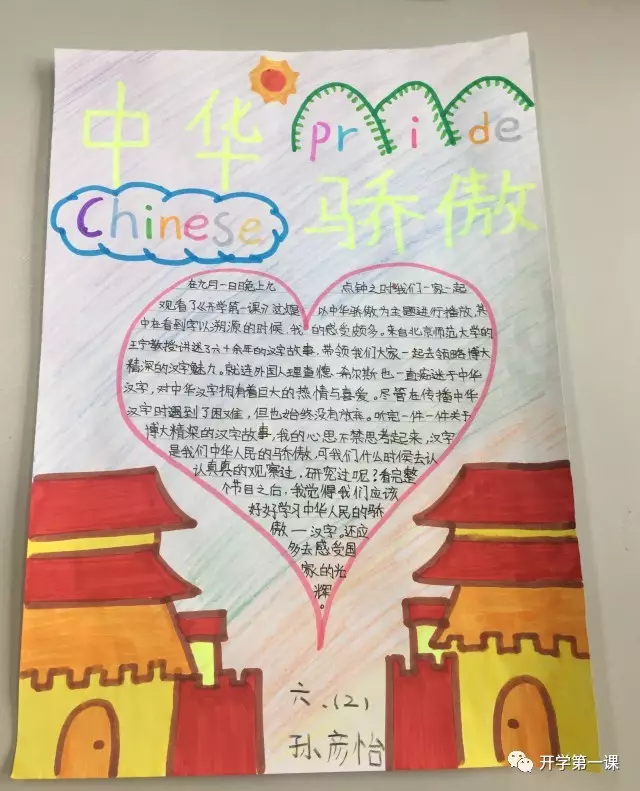 中华
pride
Chinese
骄傲
在九月一日晚上九 点钟之时我们一家一起
观看了《开学第一课》这期 以中华骄傲为主题进行播放,其
中在看到字以溯源的时候,我 的感受颇多。来自北京师范大学的
王宁教授讲述了六十余年的汉字故事,带领我们大家一起去领略博大
精深的汉字魅力。就连外国人理查德·希尔斯也一直痴迷于中华
汉字,对中华汉字拥有着巨大的热情与喜爱。尽管在传播中华
汉字时遇到了困难,但也始终没有放弃。听完一件一件关于
博大精深的汉字故事,我的心思不禁思考起来,汉字
是我们中华人民的骄傲,可我们什么时候去认
认真真的观察过,研究过呢?看完整
个节目之后,我觉得我们应该
好好学习中华人民的骄
傲——汉字。还应
多去感受国
家的光
辉。
六.(2)
孙彦怡
开学第一课